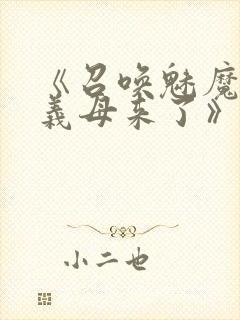 《召唤魅魔
义母来了》
小二也